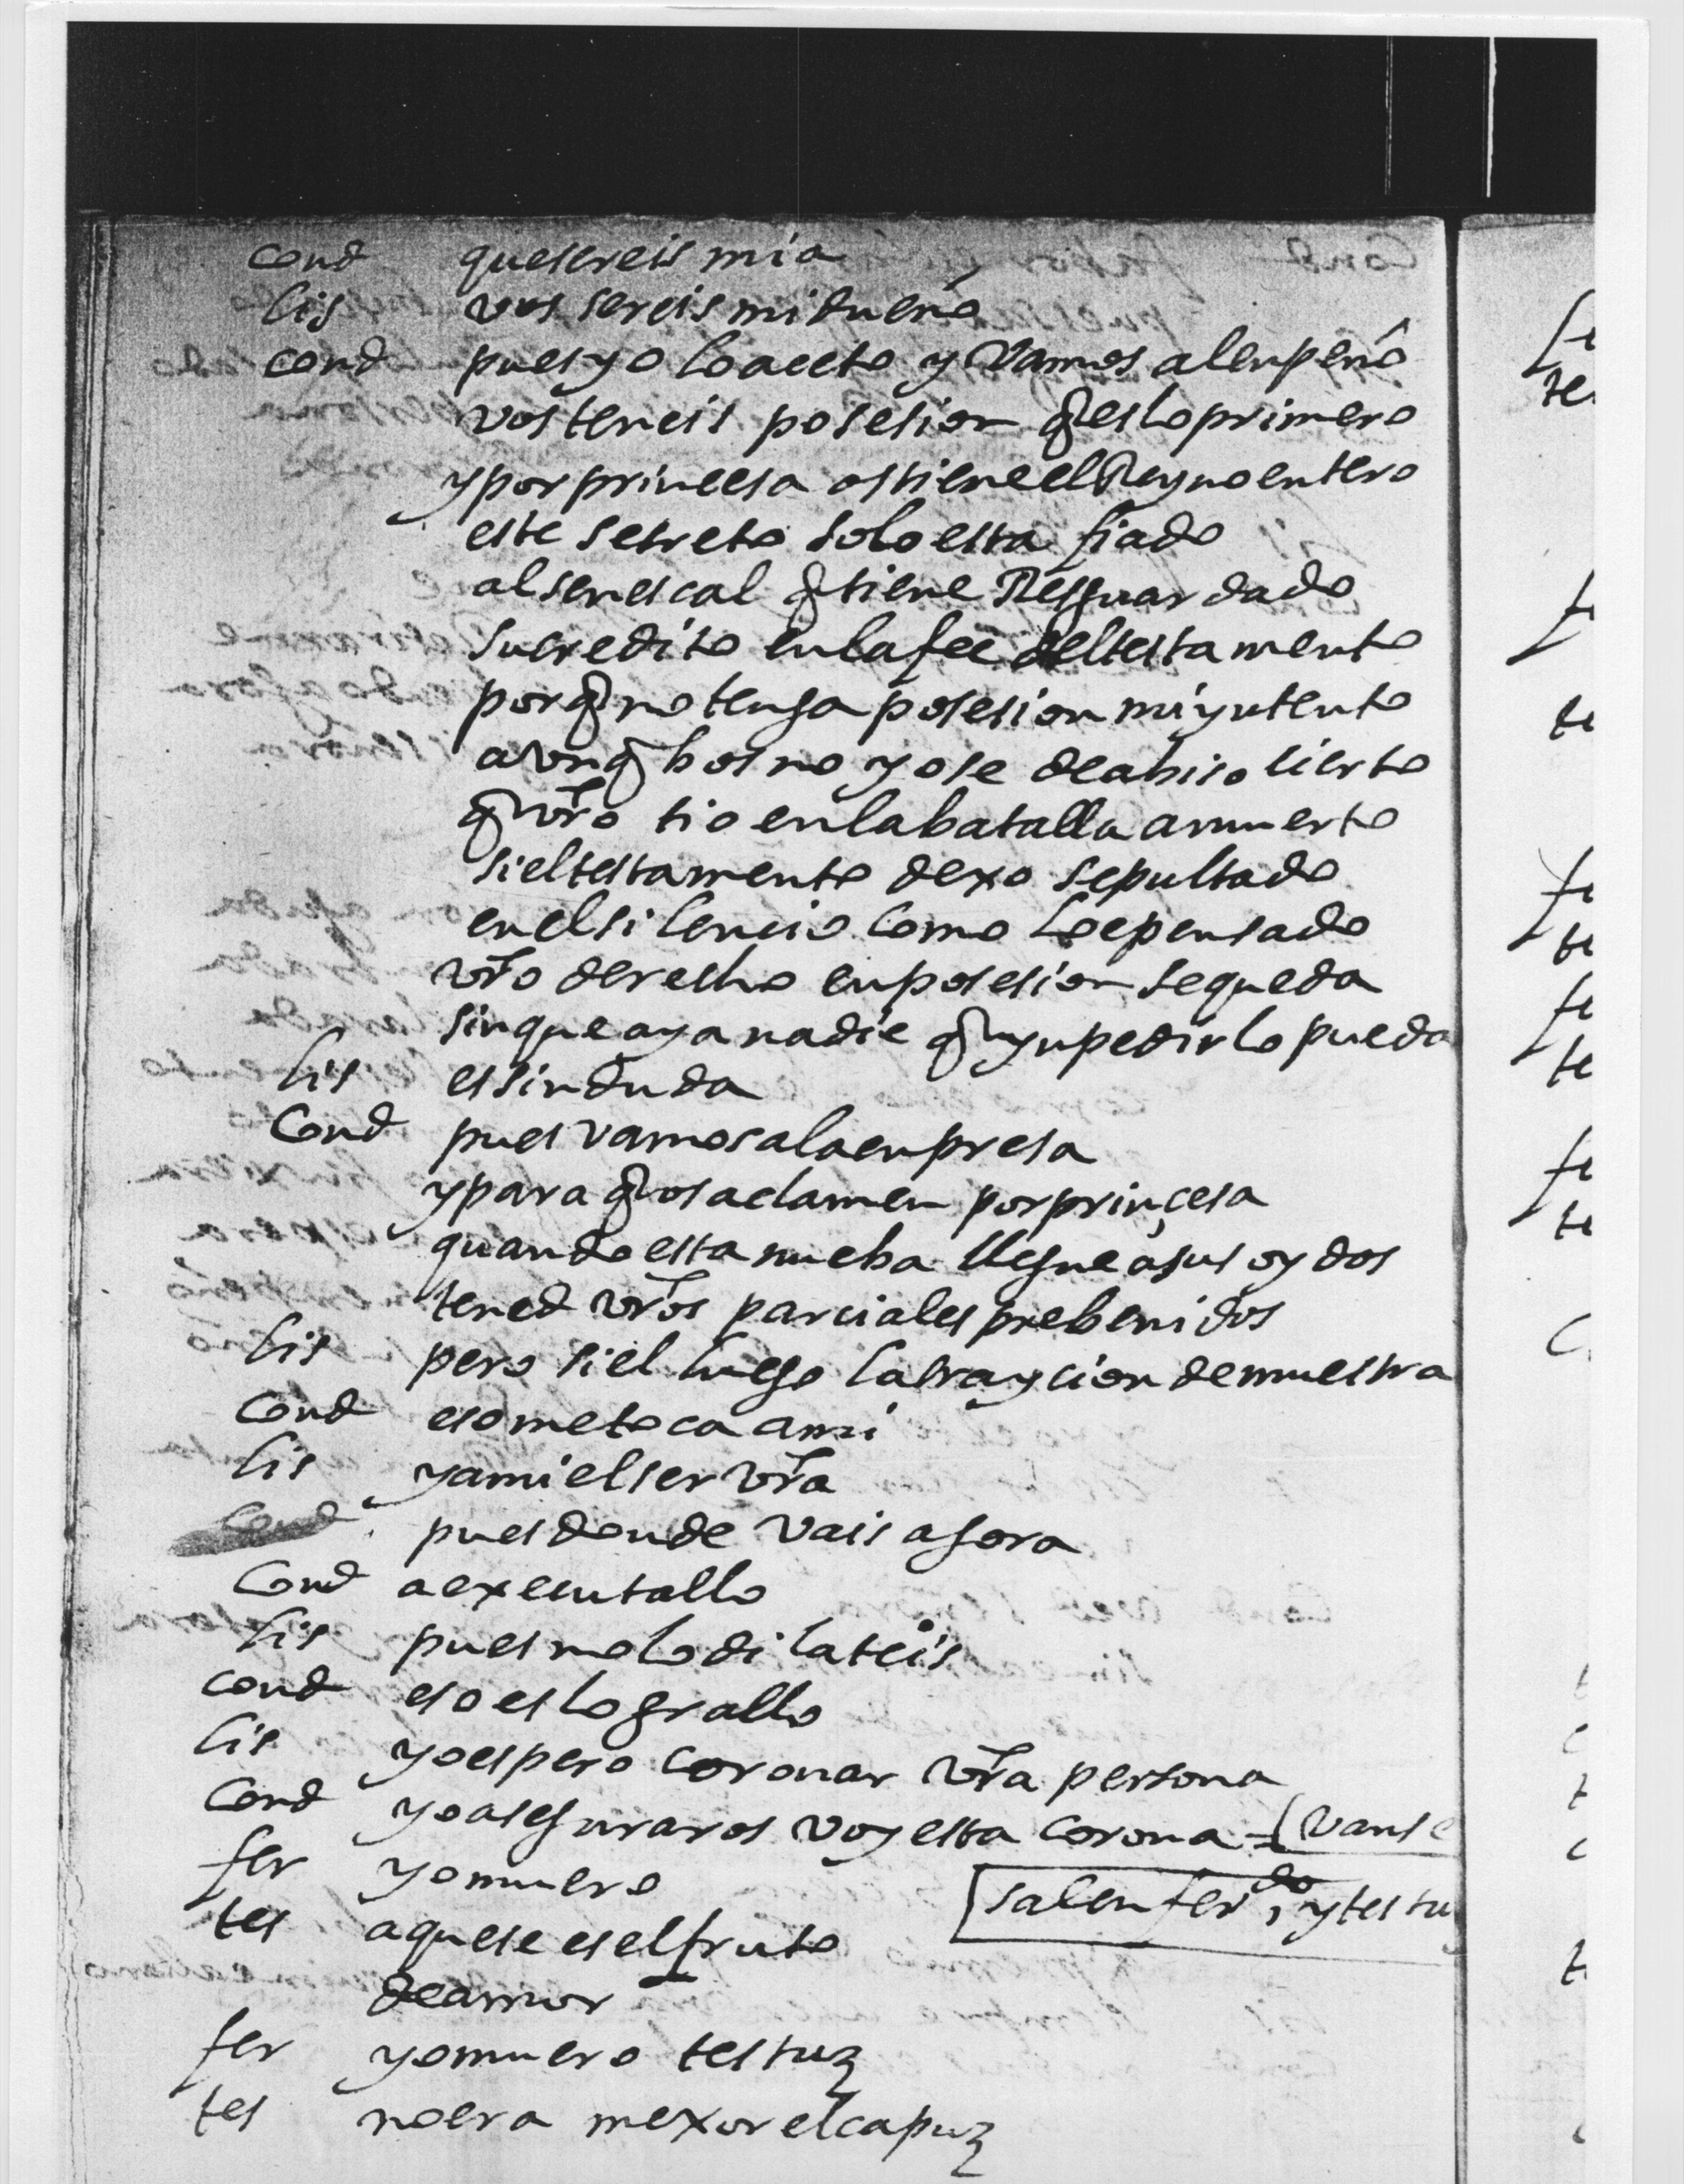 cond que sereis mia
lis vos sereis mi dueño
cond pues yo lo aceto y vamos al enpeño
vos teneis posesion q es lo primero
y por princesa os tiene el Reyno entero
este secreto solo esta fiado
al senescal q tiene Resguardado
su credito en la fee del testamento
por q no tenga posesion mi yntento
avnq bos no yo se de abiso cierto
q vro tio en la batalla a muerto
si el testamento dexo sepultado
en el silencio como lo e pensado
vro derecho en posesion se queda
sin que aya nadie q ynpedirlo pueda
lis es sin duda
Cond pues vamos a la enpresa
y para q os aclamen por princesa
quando esta nueba llegue a sus oydos
tened vros parciales prebenidos
lis pero si el luego la trayçion demuestra
Cond eso me toca a mi
lis y a mi el ser vra
Cond pues donde vais agora
Cond a executallo
lis pues no lo dilateis
cond eso es lograllo
lis yo espero coronar vra persona
Cond yo a seguraros voy esta corona vanse
salen fer do, y testu
fer yo muero
tes a que se es el fruto
de amor
fer yo muero testuz
tes no era mexor el capuz